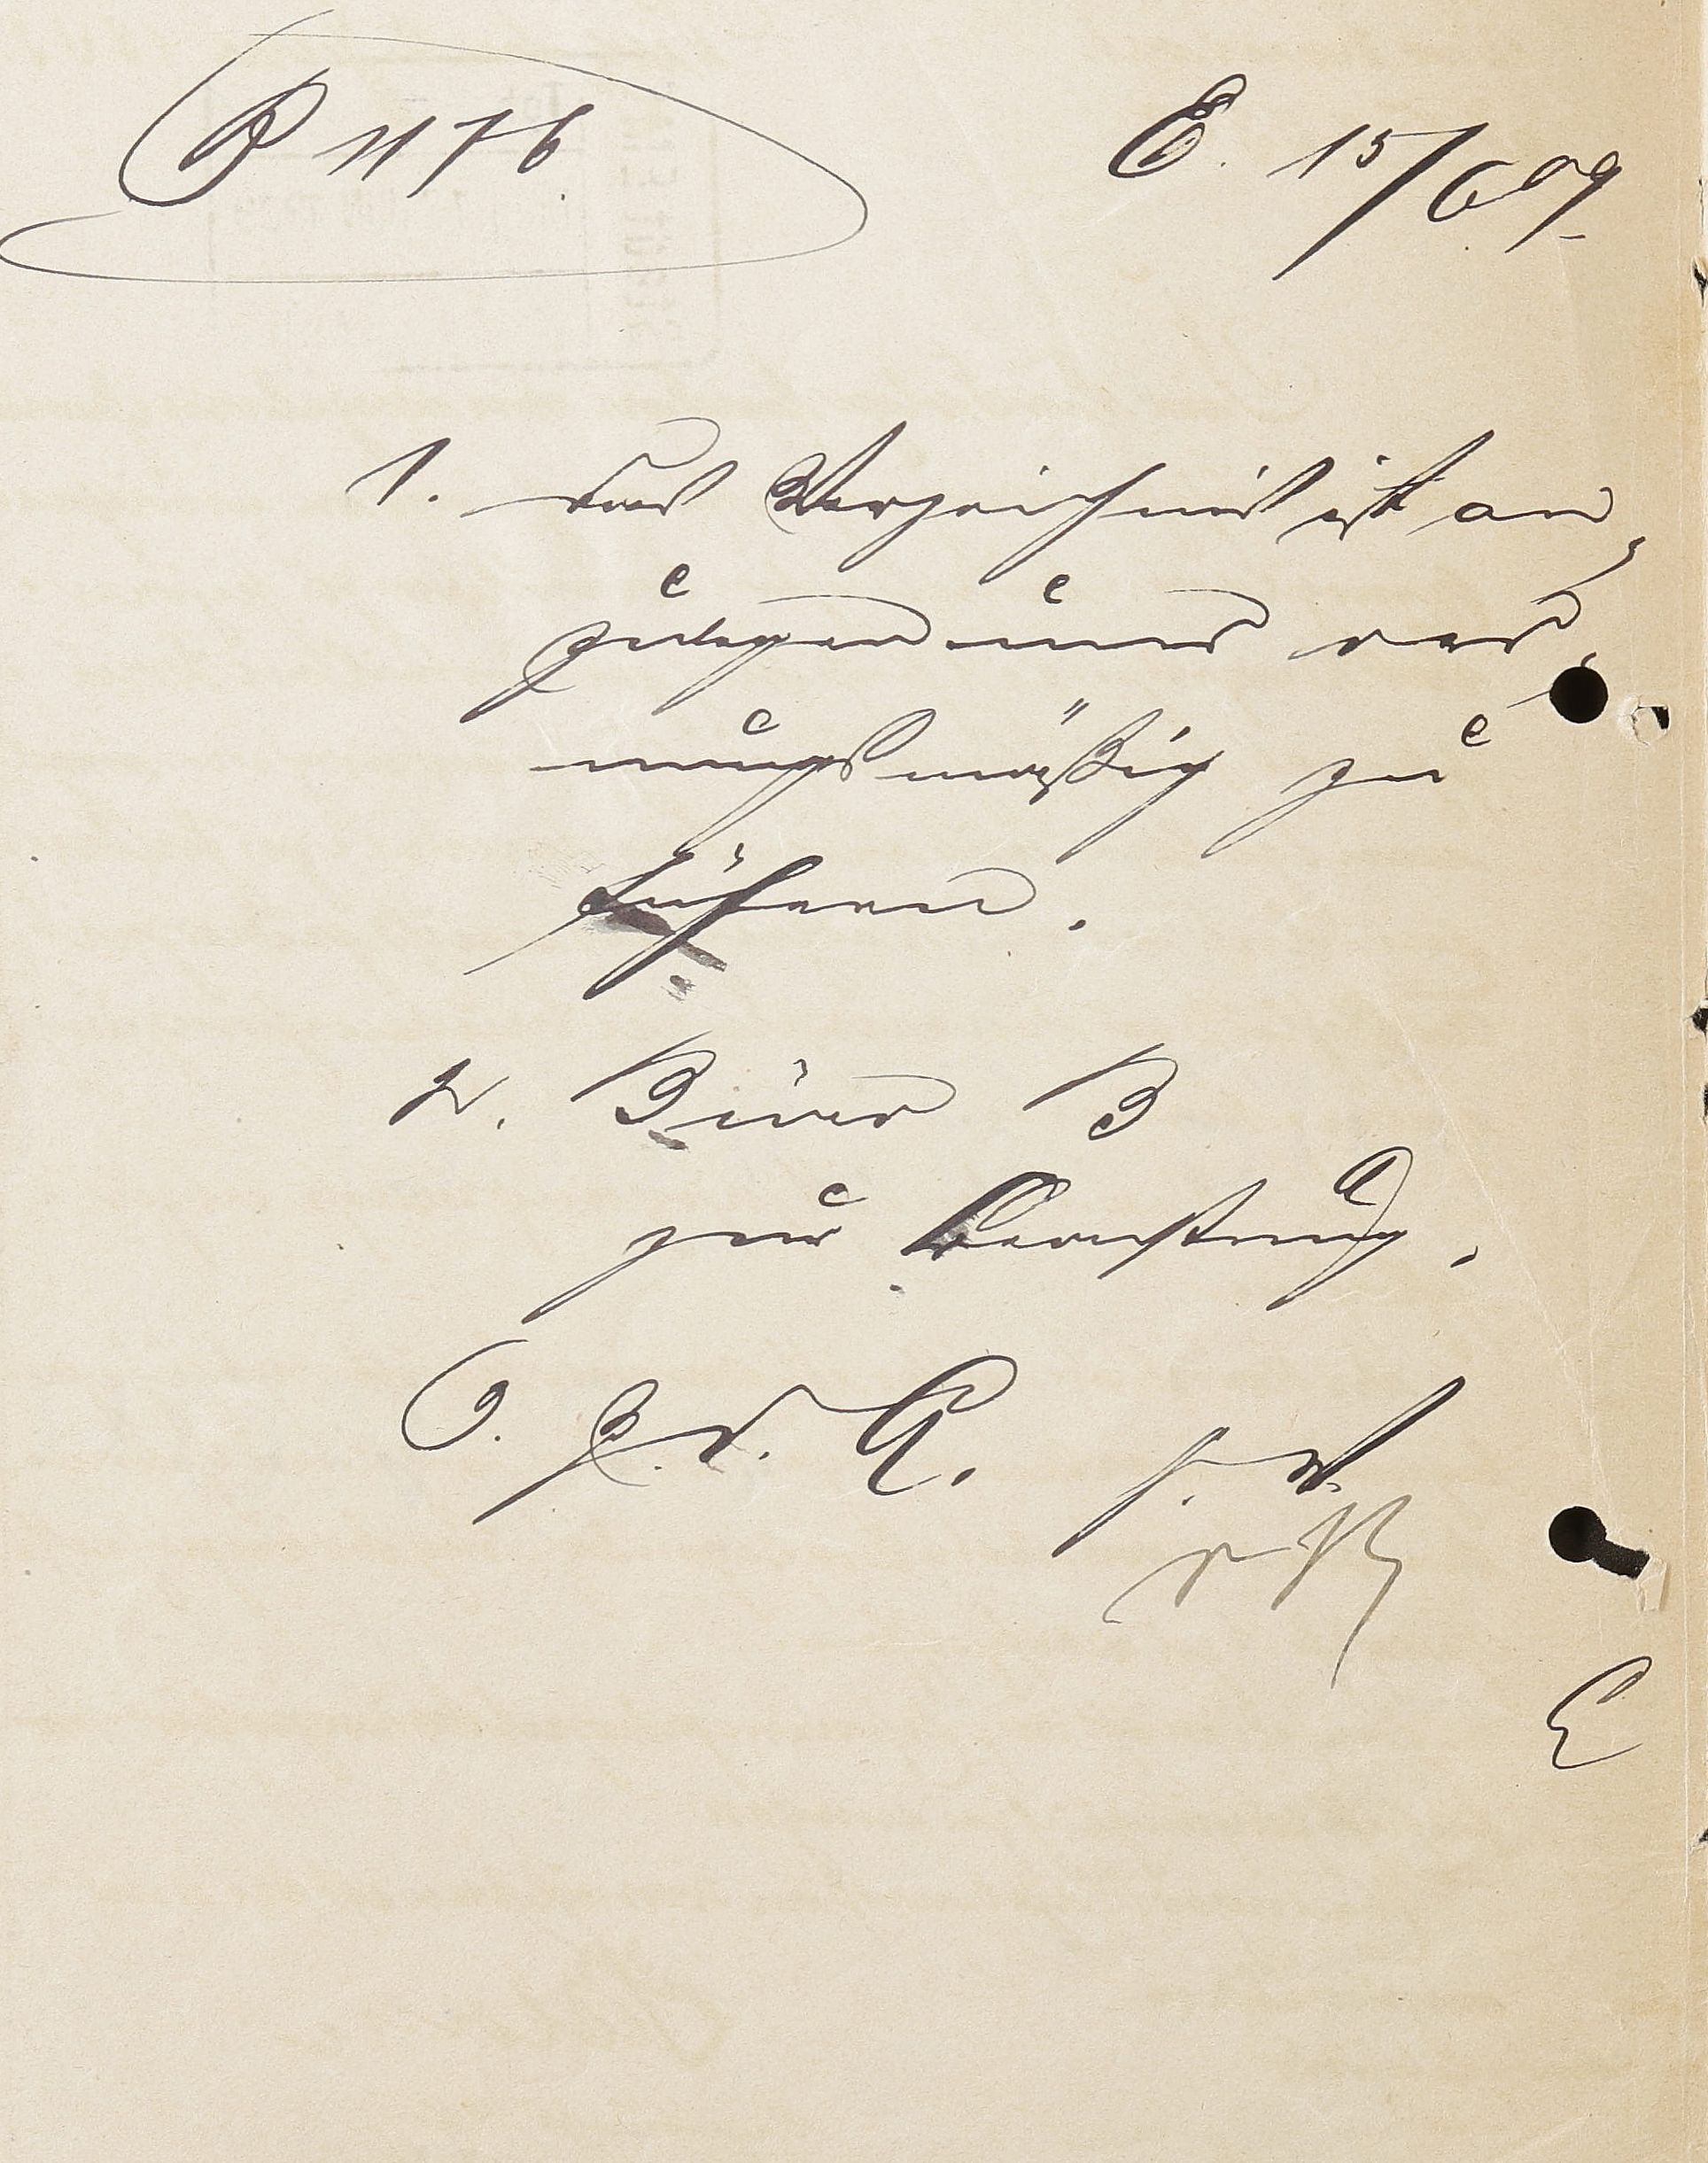 P 1176.
E. 15/6 09.
1. Das Verzeichnis ist an-
zulegen und ord-
nungsmäßig zu
führen.
2. Büro B
zur Beachtung.
3. Z. d. A.